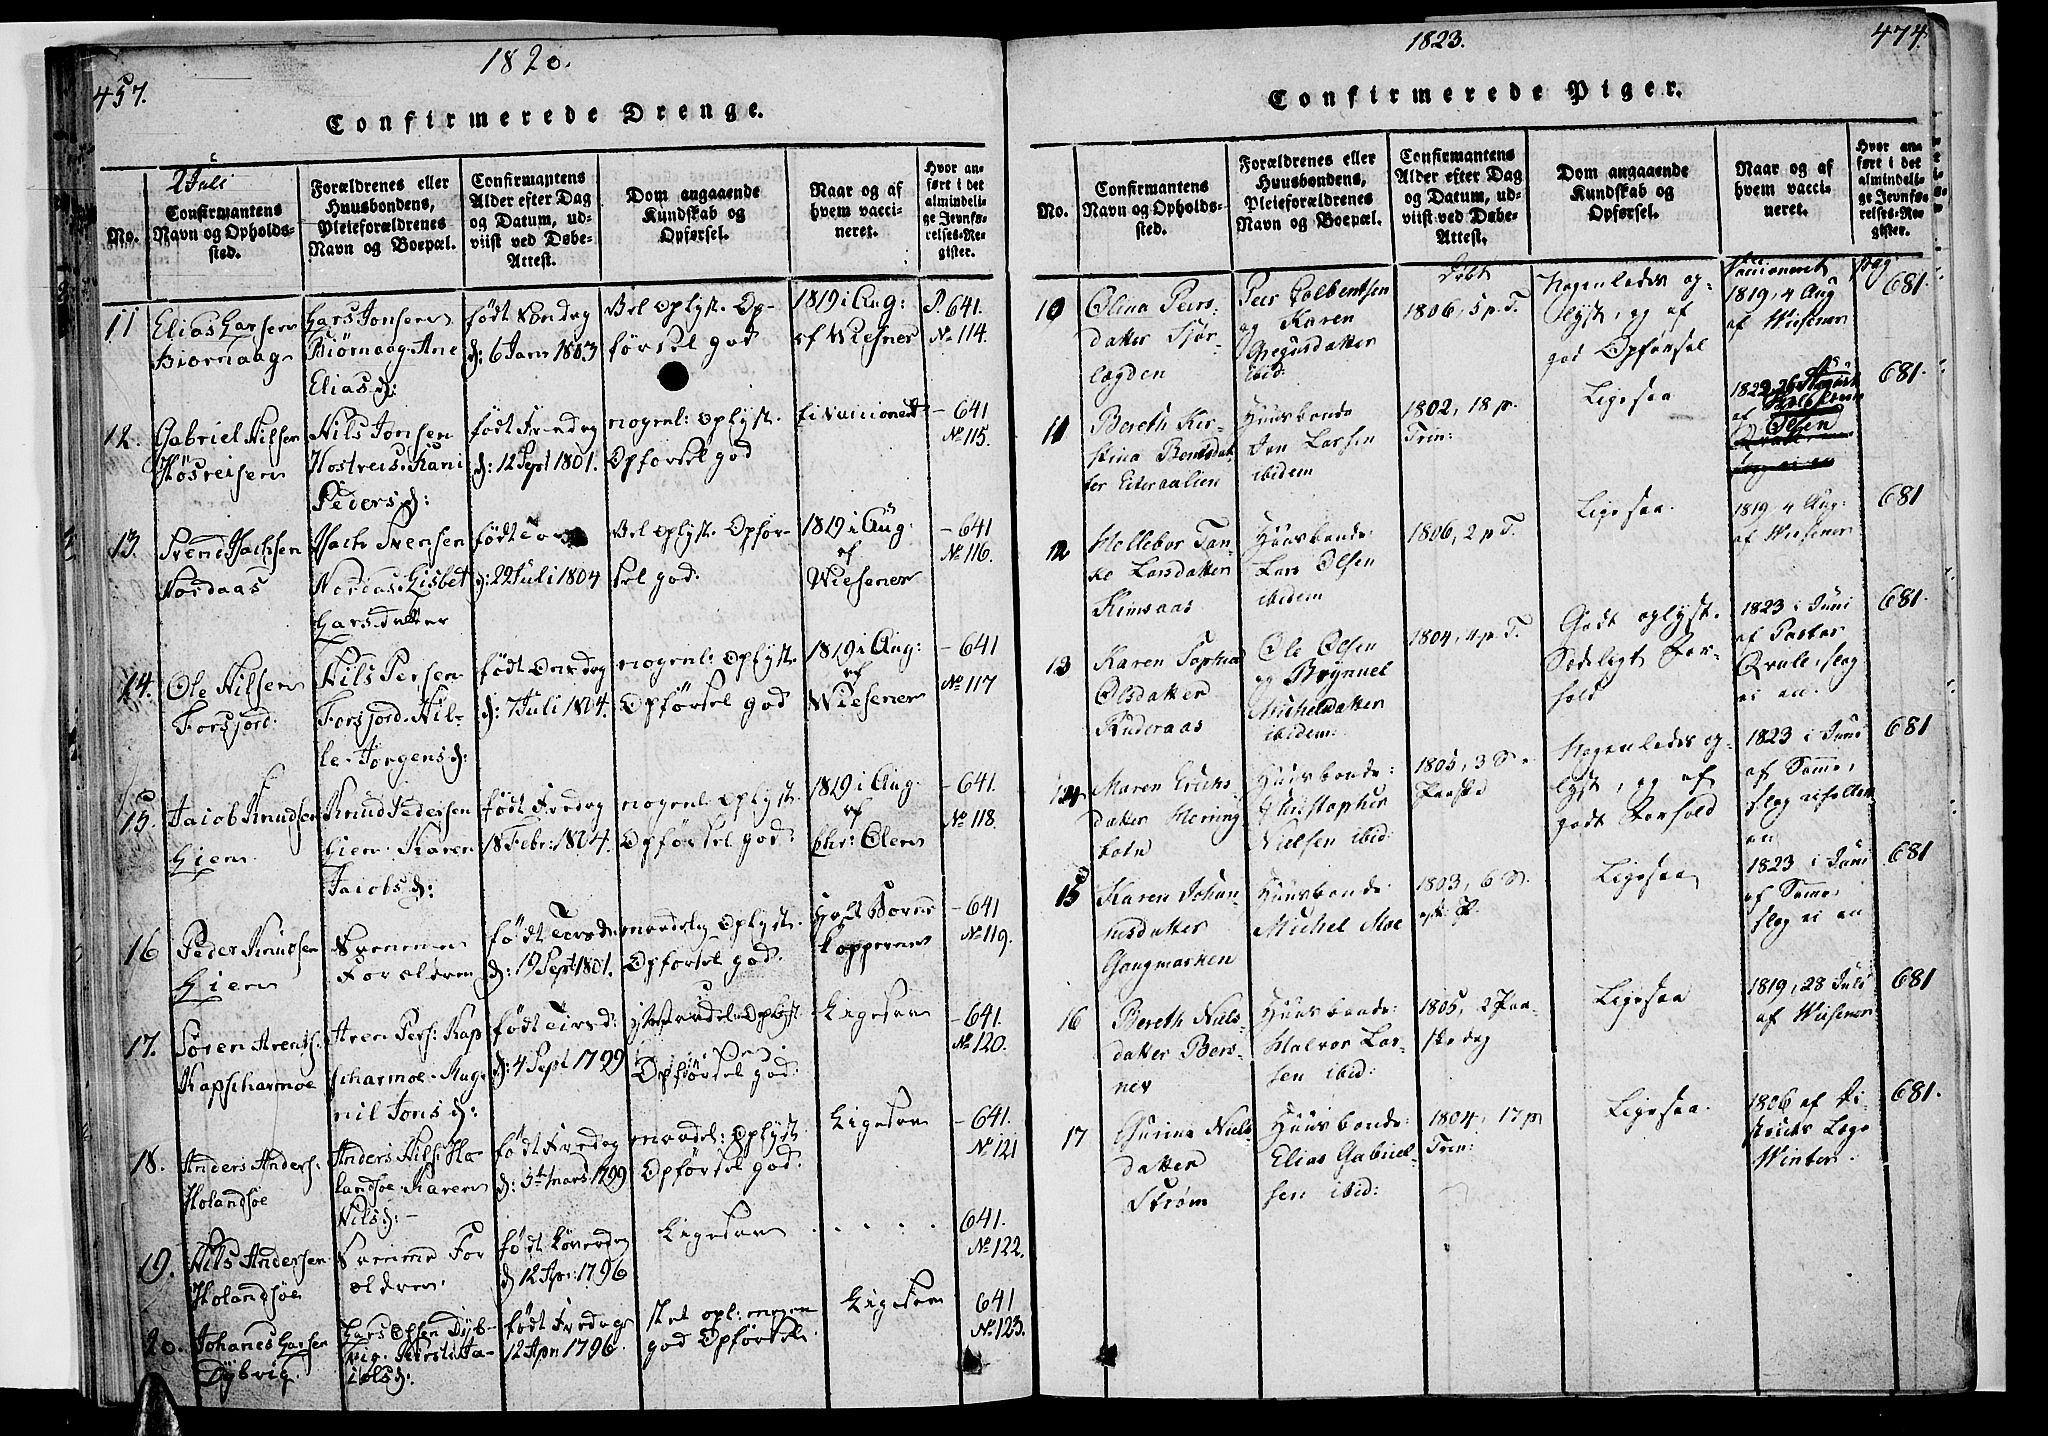 457.
1820.
Confirmerede Drenge.
2 Juli
No.
Confirmantens
Navn og Opholds-
sted.
Forældrenes eller
Huusbondens,
Pleieforældrenes
Navn og Boepæl.
Confirmantens
Alder efter Dag
og Datum, ud-
viist ved Døbe-
Attest.
Dom angaaende
Kundskab og
Opførsel.
Naar og af
hvem vacci-
neret.
Hvor an-
ført i det
almindeli-
ge Jevnfø-
relses-Re-
gister.
11
Elias Larsen
Biørnaag
Lars Jonsen
Biørnaag. Ane
Elias d:
født Søndag
d: 6 Jan 1803
Vel oplyst. Op-
førsel god
1819 i Aug:
af Wiesner
P. 641.
No 114.
12.
Gabriel Nilsen
Nils Jonsen
Peders d:
født Fredag
d: 12 Sept 1801.
nogenl: oplyst.
Opførsel god
ei vaccineret
- 641
No 115.
13.
Svend Isachsen
Nordaas
Isach Svensen
Nordaas. Lisbet
Larsdatter
født
d: 22 Juli 1804
Vel oplyst. Opfør-
sel god:
1819 i Aug:
af
Wiesener
- 641
No 116.
14.
Ole Nilsen
Forsjord.
Nils Persen
Forsjord. Nil-
le Jørgens d:
født Onsdag
d: 7 Juli 1804.
nogenl: oplyst.
Opførsel god
1819 i Aug:
af
Wiesener
- 641
No 117
15.
Jacob Knudsen
Liem
Knud Pedersen
Liem. Karen
Jacobs d:
født Fredag
18 Febr: 1804.
nogenl: oplyst.
Opførsel god:
1819 i Aug:
af
Chr: Olsen
- 641.
No 118.
16
Peder Knudsen
Liem
Samme
Forældren
født Tirsd:
d: 19 Sept 1801.
maadelig oplyst.
Opførsel god.
Havt Børne
kopperne
- 641
No 119.
17.
Søren Arents:
Kapskarmoe
Aren Pers: Kap
skarmoe. Mag-
nil Jons d:
født Tirsd:
d: 4 Sept 1799
maadel: oplyst
Opførsel god:
Ligesaa
- 641.
No 120.
18.
Anders Anders:
Holandsøe
Anders Nils: Ho-
landsøe. Karen
Nils d: -
født Fredag
d: 5te Mars 1799
maadel: oplyst
Opførsel god:
Ligesaa
- 641.
No 121
19.
Nils Andersen
Holandsøe
Samme For
ældren.
født Løverdag
d 12 Apr: 1796
Ligesaa
. . . .
641.
No 122.
20.
Johanes Larsen
Dybvig.
Lars Olsen Dyb-
vig. Kirsti Ja-
cobs d:
født Fredag
12 Apr 1796.
slet opl: nogen
god Opførsel.
Ligesaa
641
No 123.
1823.
474.
Confirmerede Piger.
No.
Confirmantens
Navn og Opholds-
sted.
Forældrenes eller
Huusbondens,
Pleieforældrenes
Navn og Boepæl.
Confirmantens
Alder efter Dag
og Datum, ud-
viist ved Døbe-
Attest.
Dom angaaende
Kundskab og
Opførsel.
Naar og af
hvem vacci-
neret.
Hvor an-
ført i det
almindeli-
ge Jevnfø-
relses-Re-
gister.
10
Olina Peers
datter Tjør-
løgden
Peer Colbentsen
og Karen
Gregusdatter
ibid:
Døbt
1806, 5 p. T.
Nogenledes op-
lyst, og af
god Opførsel
Vaccineret
1819, 4 Aug
af Wiesener
pag
681.
11
Bereth Kir-
stina Bentsdat
ter Eiteraalien
Huusbonde
Jon Larsen
ibidem
1802, 18 p.
Trin:
Ligesaa
af
Olsen
681.
12
Hellebor Tan-
ke Larsdatter
Remsaas
Huusbonde
Lars Olsen
ibidem
1806, 2 p T.
Ligesaa.
1819 4 Aug:
af Wiesener
681
13
Karen Sophia
Olsdatter
Ruderaas
Ole Olsen
og Brynnel
Michelsdatter
ibidem:
1804, 4 p. T.
Godt oplyst.
Sædeligt For-
hold
1823 i Juni
af Pastor
Qvale, slog
ei an.
681.
14
Maren Erichs-
datter Herring
botn
Huusbonde:
Christopher
Nielsen ibid:
1805, 3 S.
Paaske
Nogenledes op-
lyst, og af
godt Forhold
1823 i Juni
af Samme,
slog
an
681
15
Karen Johan-
nesdatter
Gangmarken
Huusbonde
Michel Moe
1803, 6 S.
Ligesaa
1823 i Juni
af Samme
slog ei an
681
16
Bereth Niels-
datter Bers-
nev
Huusbonde:
Halvor Lar-
sen ibid:
1805, 2 Paa-
skedag
Ligesaa
1819, 28 Juli
af Wiesener
681
17
Gurina Niels
datter
Strøm
Huusbonde:
Elias Gabriel-
sen ibid:
1804, 17 p
Trin:
Ligesaa.
1806 af Di-
stricts Læge
Winter.
681.